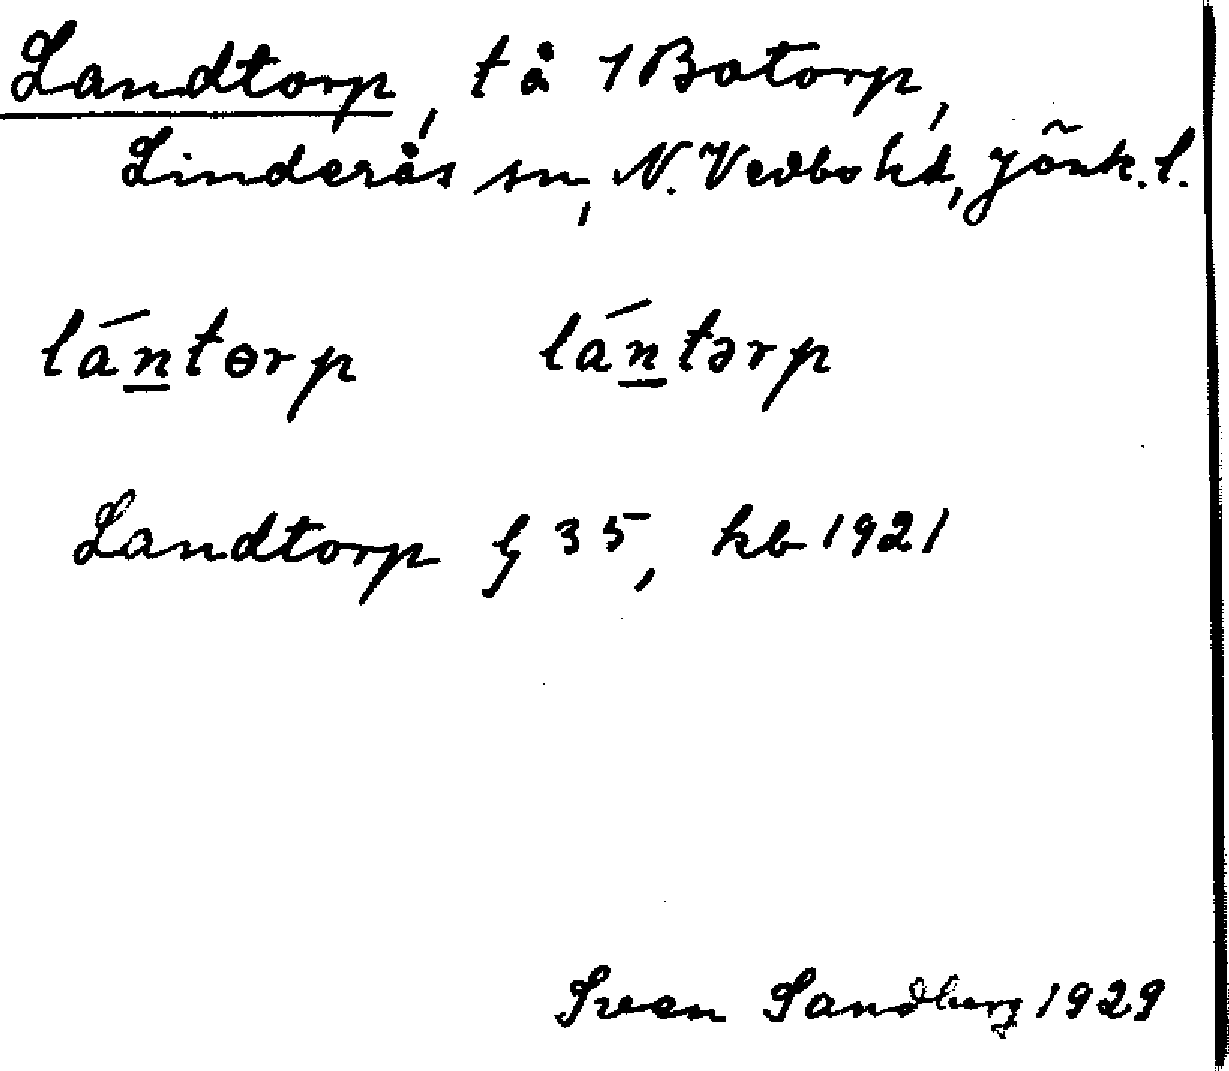 Landtorp, t å 1 Botorp,
Linderås sn, N. Vedbo hd, Jönk. l.
lántɵrp lántərp
Landtorp § 35, kb 1921
Sven Sandberg 1929